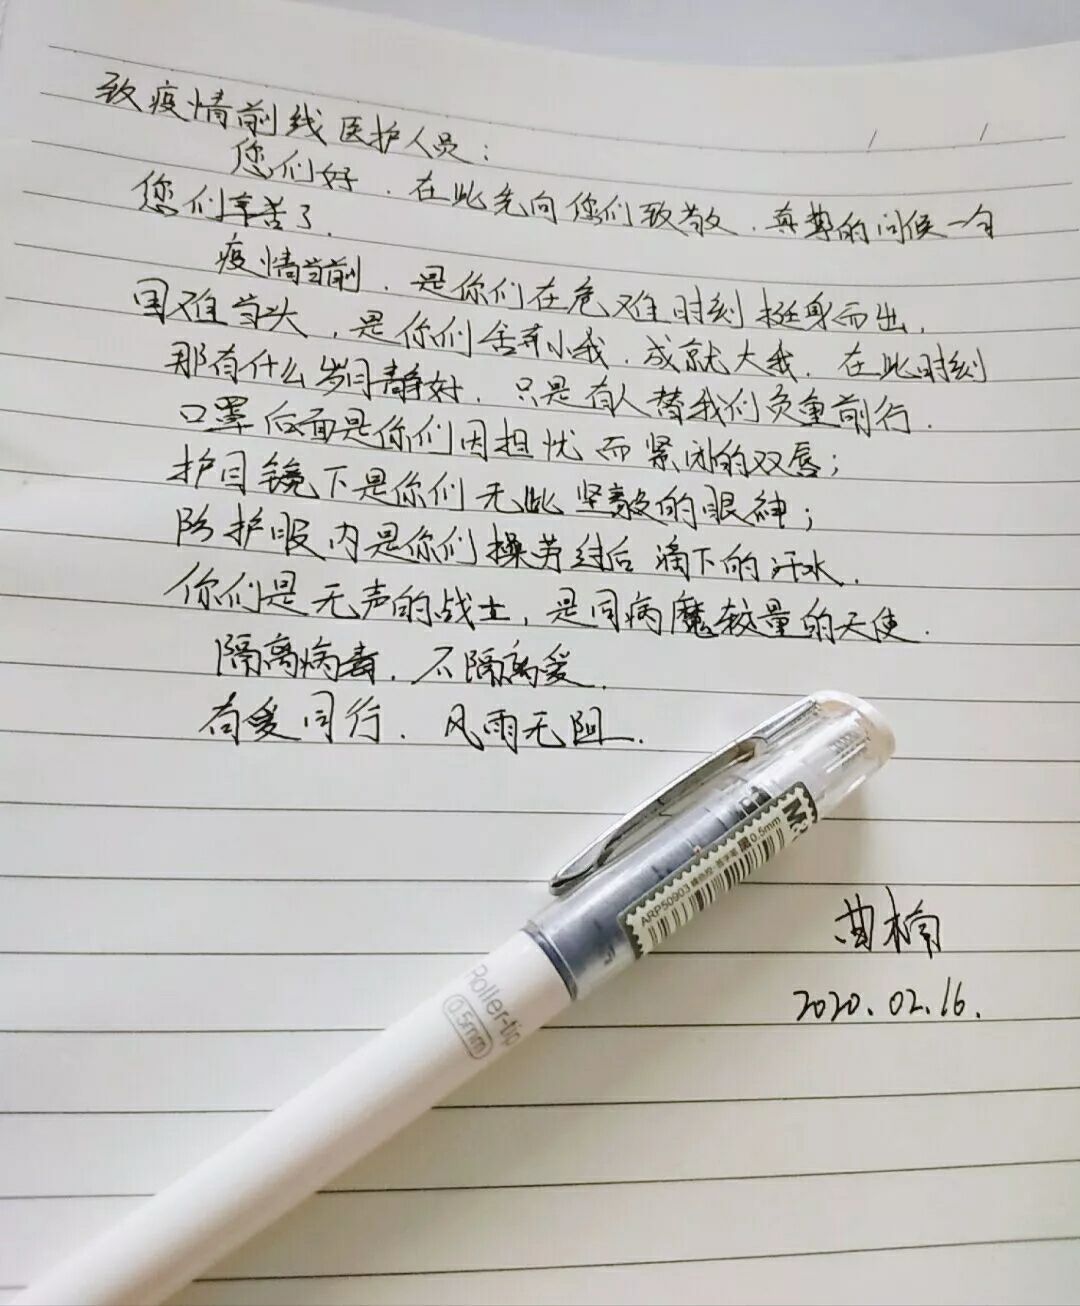 致疫情前线医护人员：
您们好，在此先向您们致敬，真挚的问候一句
您们辛苦了.
疫情当前，是你们在危难时刻挺身而出，
国难当头，是你们舍弃小我，成就大我，在此时刻
那有什么岁月静好，只是有人替我们负重前行.
口罩后面是你们因担忧而紧闭的双唇；
护目镜下是你们无比坚毅的眼神；
防护服内是你们操劳过后滴下的汗水.
你们是无声的战士，是同病魔较量的天使.
隔离病毒，不隔离爱.
有爱同行，风雨无阻.
曹楠
2020.02.16.
M&
ARP50903
黑0.5mm
Roller-tip
0.5mm